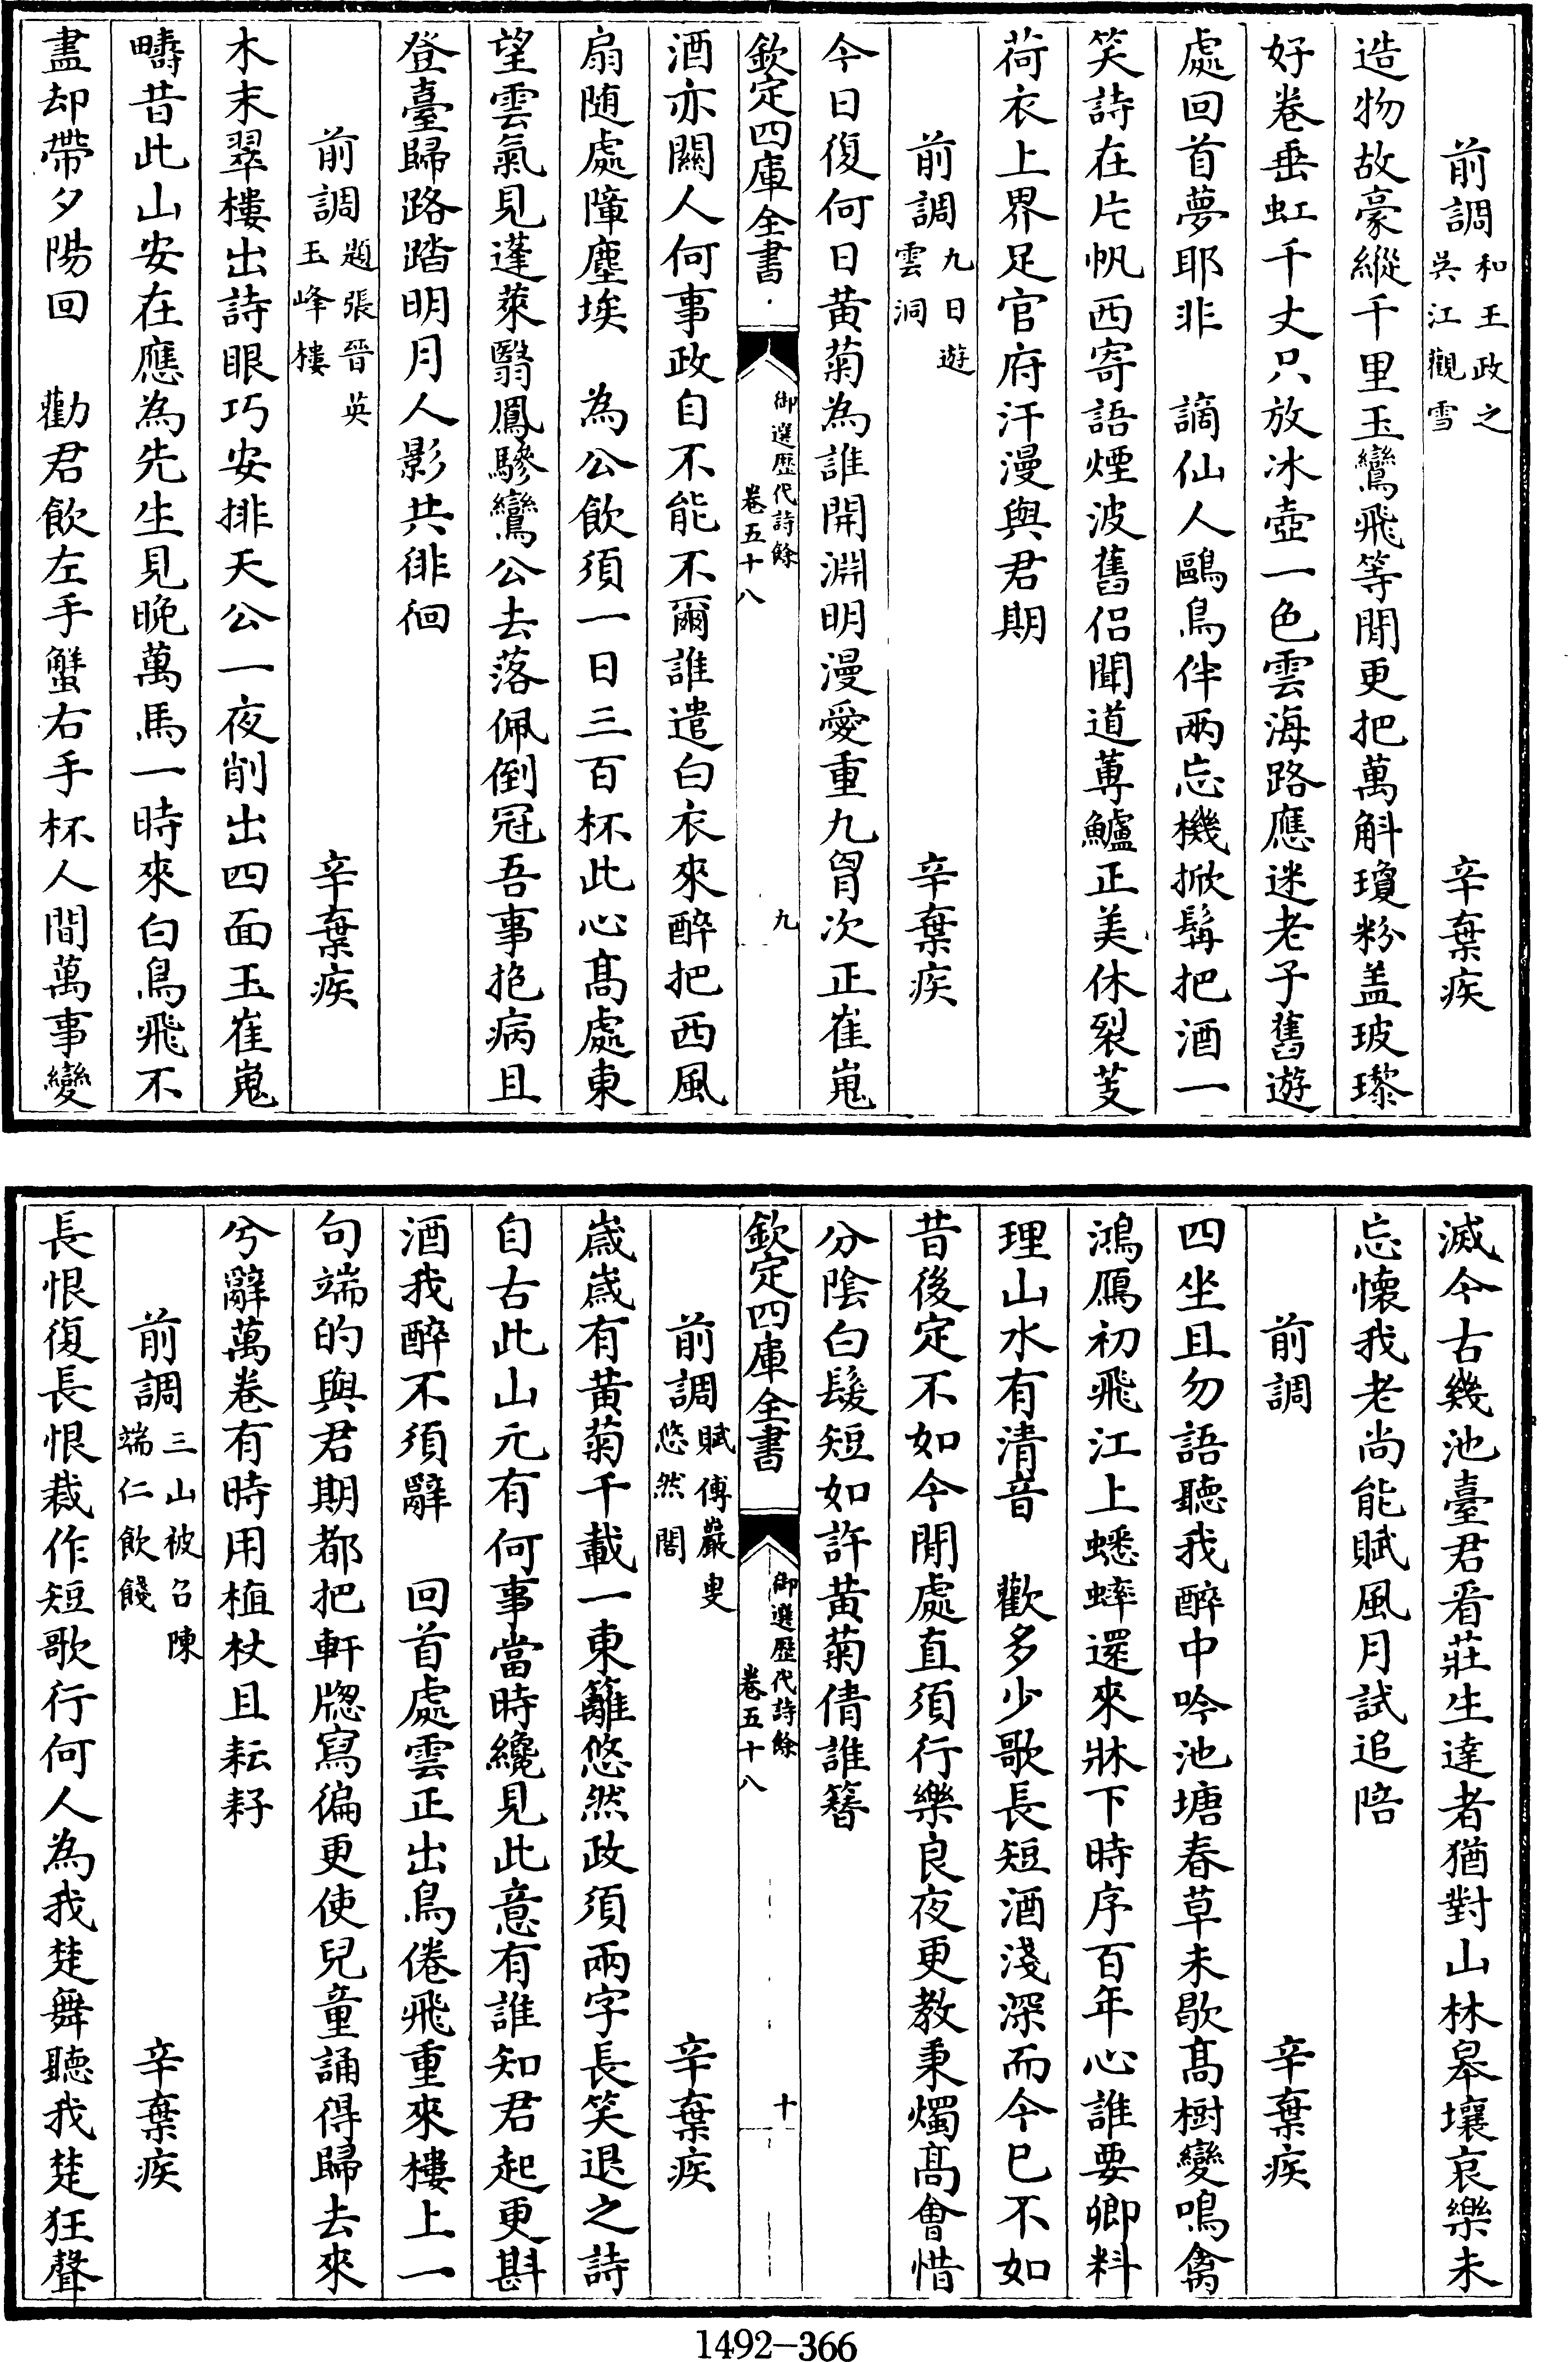 前調和王政之吳江觀雪　辛棄疾
造物故豪縱千里玉鸞飛等閒更把萬斛瓊粉盖玻瓈
好卷垂虹千丈只放冰壺一色雲海路應迷老子舊遊
處回首夢耶非　謫仙人鷗鳥伴兩忘機掀髯把酒一
笑詩在片帆西寄語煙波舊侣聞道蓴鱸正美休裂芰
荷衣上界足官府汗漫與君期
前調九日遊雲洞　辛棄疾
今日復何日黃菊為誰開淵明漫愛重九胷次正崔嵬
欽定四庫全書　御選歴代詩餘卷五十八　九
酒亦關人何事政自不能不爾誰遣白衣來醉把西風
扇随處障塵埃　為公飲須一日三百杯此心髙處東
望雲氣見蓬萊翳鳳驂鸞公去落佩倒冠吾事抱病且
登臺歸路踏明月人影共徘徊
前調題張晉英玉峰樓　辛棄疾
木末翠樓出詩眼巧安排天公一夜削出四面玉崔嵬
疇昔此山安在應為先生見晚萬馬一時來白鳥飛不
盡却帶夕陽回　勸君飲左手蟹右手杯人間萬事變
滅今古幾池臺君看莊生達者猶對山林皋壤哀樂未
忘懷我老尚能賦風月試追陪
前調　辛棄疾
四坐且勿語聽我醉中吟池塘春草未歇髙樹變鳴禽
鴻鴈初飛江上蟋蟀還來牀下時序百年心誰要卿料
理山水有清音　歡多少歌長短酒淺深而今已不如
昔後定不如今閒處直須行樂良夜更教秉燭髙會惜
分陰白髮短如許黃菊倩誰簪
欽定四庫全書　御選歴代詩餘卷五十八　十
前調賦傅巖叟悠然閣　辛棄疾
歲歲有黃菊千載一東籬悠然政須兩字長笑退之詩
自古此山元有何事當時纔見此意有誰知君起更斟
酒我醉不須辭　回首處雲正出鳥倦飛重來樓上一
句端的與君期都把軒牕寫徧更使兒童誦得歸去來
兮辭萬卷有時用植杖且耘耔
前調三山被召陳端仁飲餞　辛棄疾
長恨復長恨裁作短歌行何人為我楚舞聽我楚狂聲
1492-366